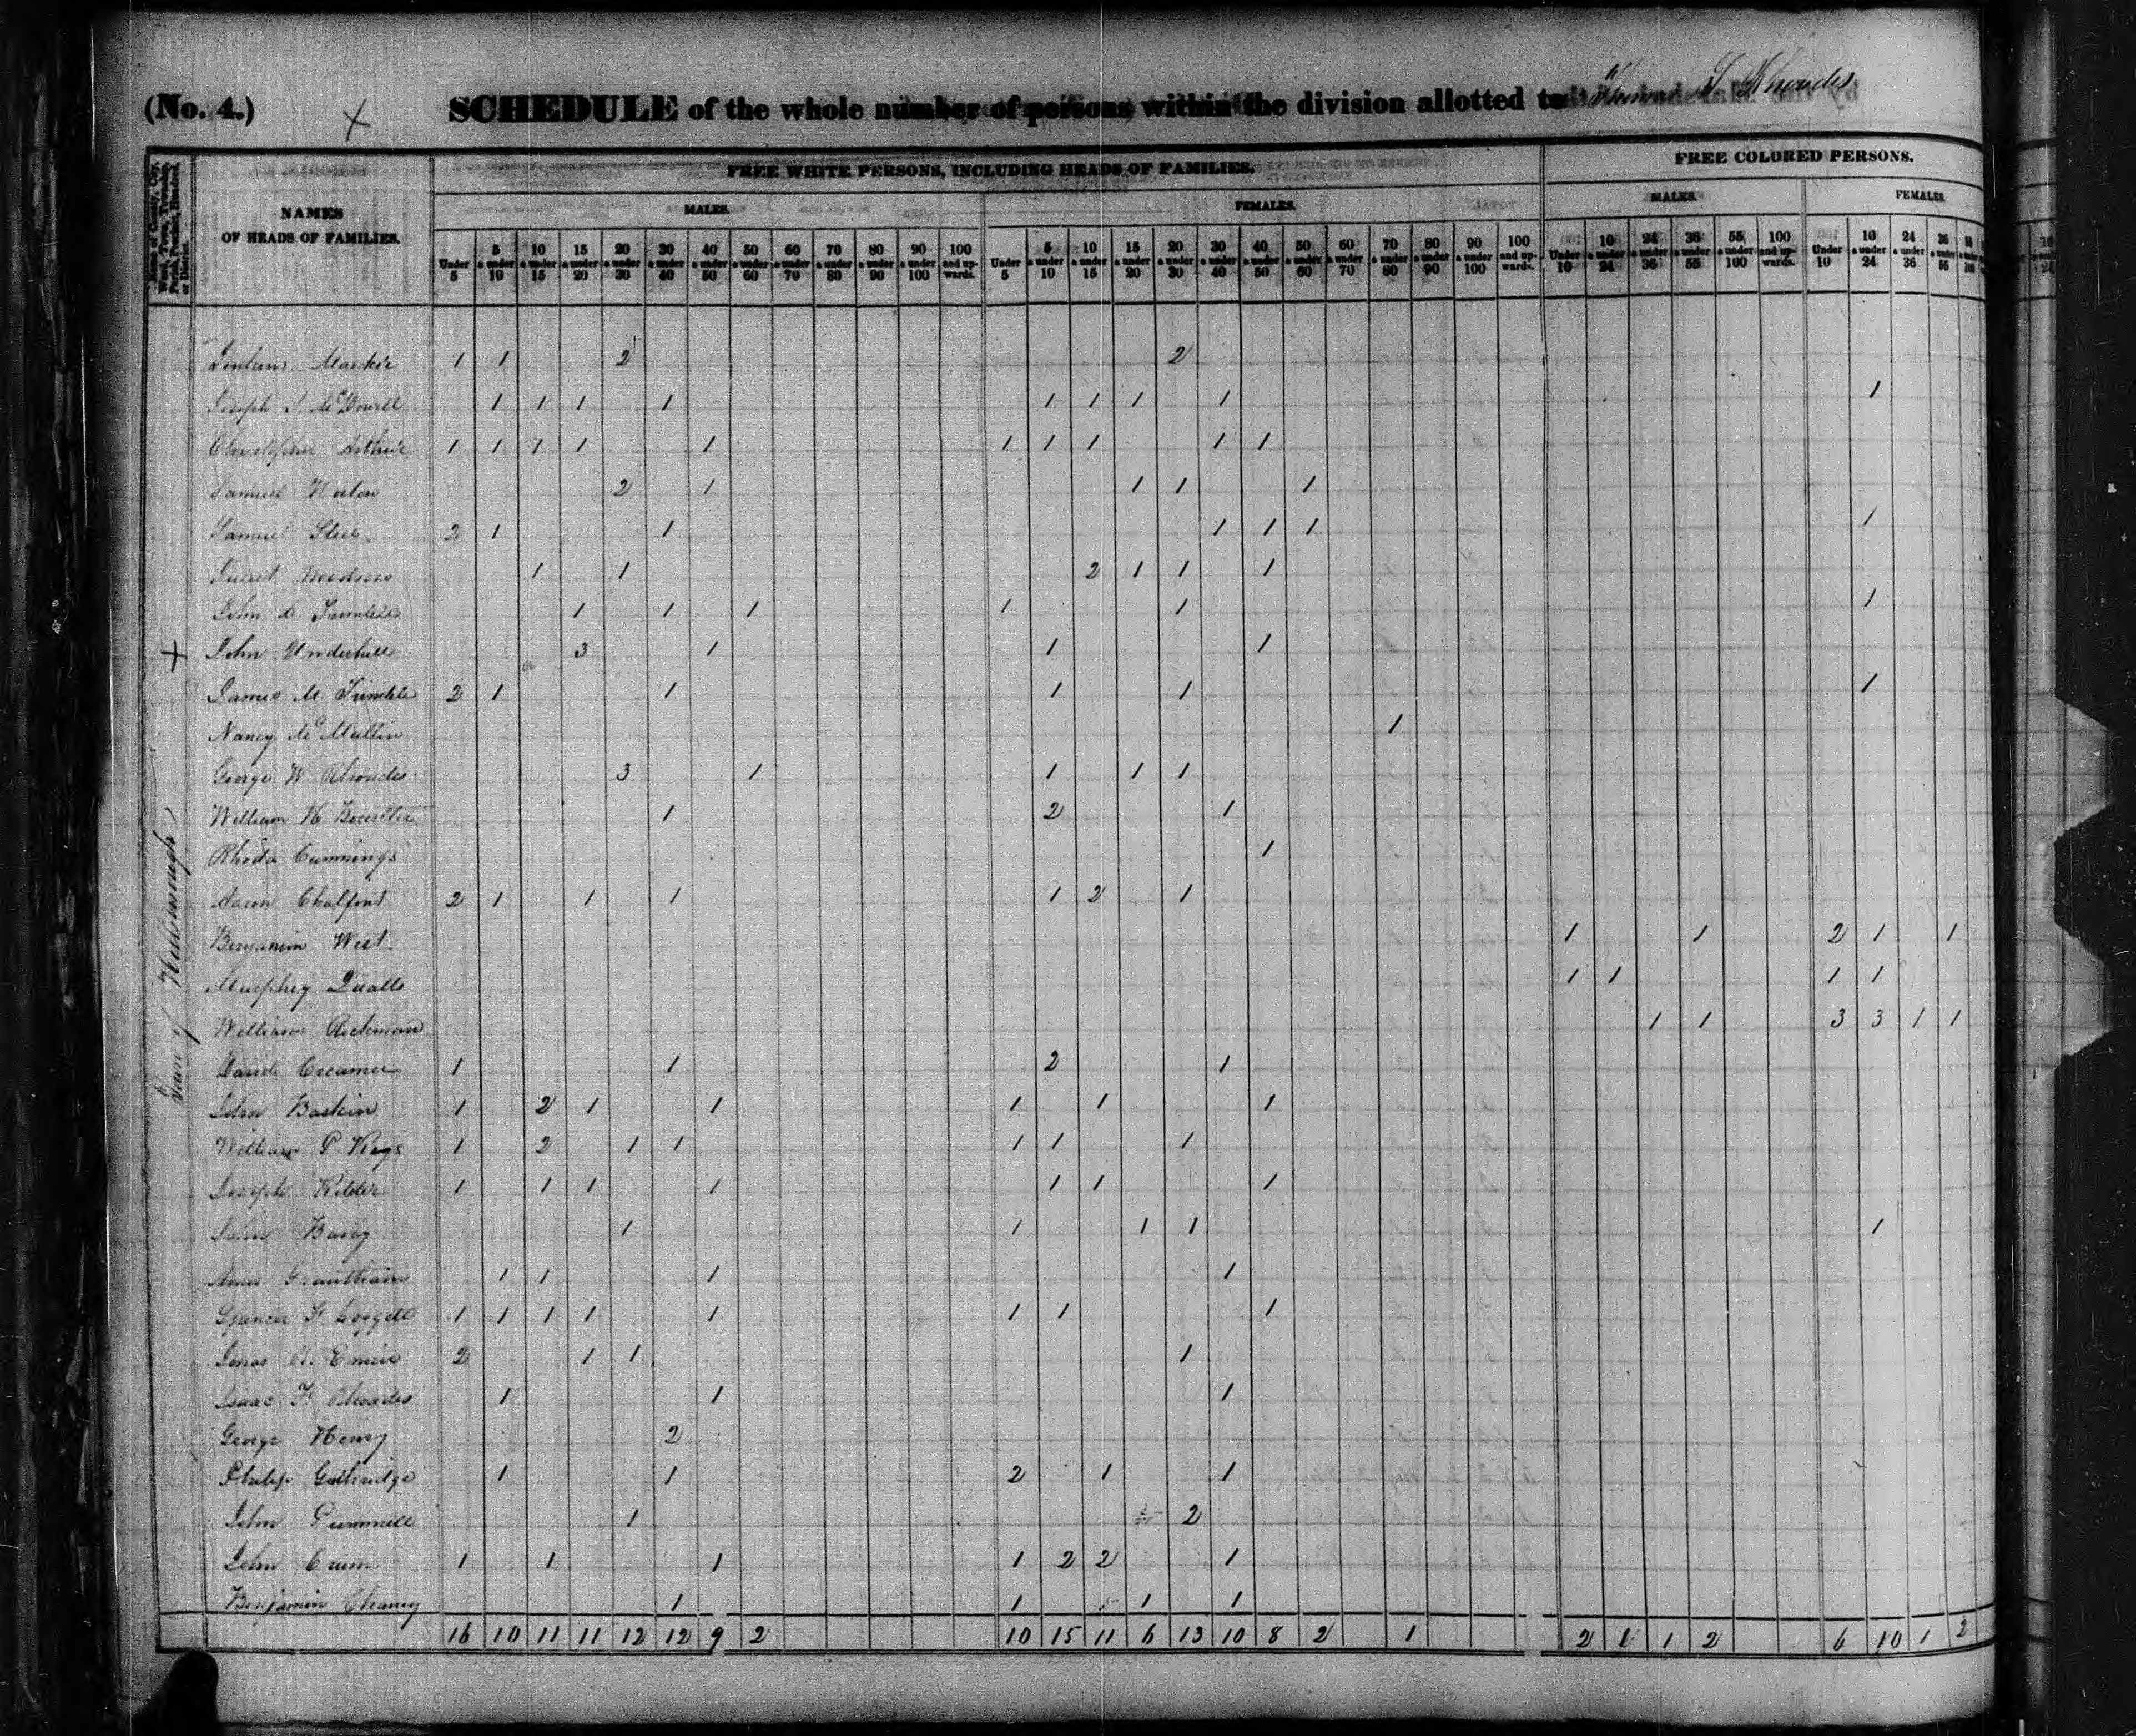 (No. 4.) SCHEDULE of the whole number of persons within the division allotted to S Rhoades
Name of County, City, Ward, Town, Township, Parish, Precinct, Hundred, or District.
NAMES OF HEADS OF FAMILIES.
FREE WHITE PERSONS, INCLUDING HEADS OF FAMILIES.
FREE COLORED PERSONS.
MALES. FEMALES. MALES. FEMALES.
Under 5 | 5 & under 10 | 10 & under 15 | 15 & under 20 | 20 & under 30 | 30 & under 40 | 40 & under 50 | 50 & under 60 | 60 & under 70 | 70 & under 80 | 80 & under 90 | 90 & under 100 | 100 and upwards. | Under 5 | 5 & under 10 | 10 & under 15 | 15 & under 20 | 20 & under 30 | 30 & under 40 | 40 & under 50 | 50 & under 60 | 60 & under 70 | 70 & under 80 | 80 & under 90 | 90 & under 100 | 100 and upwards. | Under 10 | 10 & under 24 | 24 & under 36 | 36 & under 55 | 55 & under 100 | 100 and upwards. | Under 10 | 10 & under 24 | 24 & under 36 | 36 & under 55
Town of Hillsborough
1 1 2 2
Joseph J. McDowell 1 1 1 1 1 1 1 1 1
Christopher Arthur 1 1 1 1 1 1 1 1 1 1
Samuel Horton 2 1 1 1 1
Samuel Steel 2 1 1 1 1 1 1
Woodrow 1 1 2 1 1 1
John A. Trimble 1 1 1 1 1 1
John Underhill 3 1 1 1
James M Trimble 2 1 1 1 1 1
Nancy McMullin 1
George W. Rhoades 3 1 1 1 1
William H. 1 2 1
Rhoda Cummings 1
Aaron Chalfont 2 1 1 1 1 2 1
Benjamin West 1 1 2 1 1
Murphey Qualls 1 1 1 1
William Rickman 1 1 3 3 1 1
David Creamer 1 1 2 1
John Baskin 1 2 1 1 1 1 1
William P. Keys 1 2 1 1 1 1 1
Joseph Kibler 1 1 1 1 1 1 1
John Barry 1 1 1 1 1
Grantham 1 1 1 1
Spencer F 1 1 1 1 1 1 1 1
2 1 1 1
Isaac F. Rhoades 1 1 1
George Henry 2
Philip Guthridge 1 1 2 1 1
John Pummell 1 2
John Crum 1 1 1 1 2 2 1
Benjamin Chaney 1 1 1 1
16 10 11 11 12 12 9 2 10 15 11 6 13 10 8 2 1 2 1 1 2 6 10 1 2